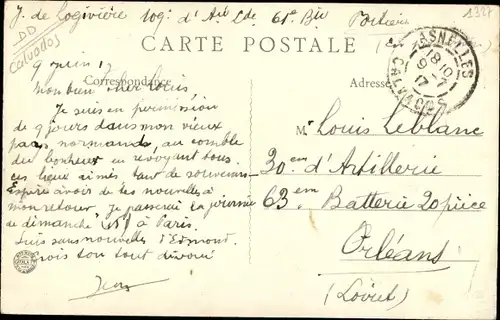 J. de Logivière 109e d'Alde 61e Bie
DD
Calvados
1327
CARTE POSTALE
Correspondance
Adresse
ASNELLES
CALVADOS
9 juin 17
Mon bien cher Louis
Je suis en permission
de 9 jours dans mon vieux
pays normand, au comble
du bonheur en revoyant tous
ces lieux aimés tant de souvenirs
Espère avoir de tes nouvelles à
mon retour. Je passerai la journée
de dimanche à Paris.
Suis sans nouvelles d'Edmond.
Crois ton tout dévoué
Jean
M. Louis Leblanc
30em d'Artillerie
63em Batterie 20 pièce
Orléans
(Loiret)